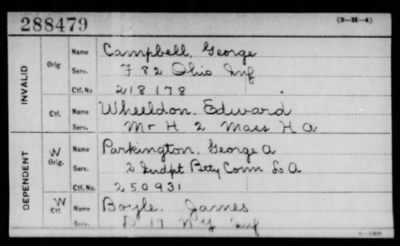 288479 (3-H-4)
INVALID
Orig Name Campbell, George
Serv. F 82 Ohio Inf
Ctf. No. 218178
Ctf. Name Wheeldon, Edward
Serv. H 2 Mass H A
DEPENDENT
W Orig. Name Parkington, George A
Serv. 2 Indpt Btty Conn L A
Ctf. No. 250931
W Ctf. Name Boyle, James
Serv. D 17 Inf